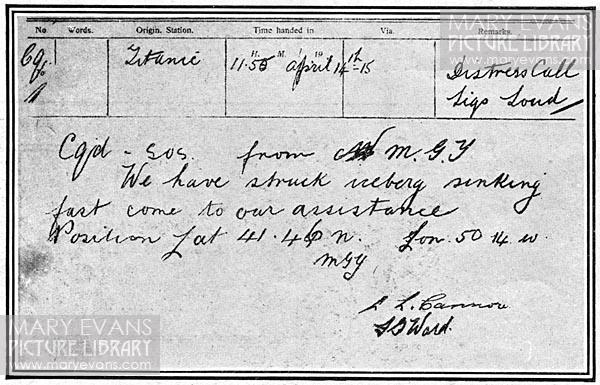 MARY EVANS
PICTURE LIBRARY
No Words. Origin. Station. Time handed in Via. Remarks.
H. M.
Titanic 11.55 April 14th-15 Distress Call
Sigs Loud
Cqd - SOS. from M.G.Y
We have struck iceberg sinking
fast come to our assistance
Position Lat 41.46 n. Lon. 50 14 w.
MGY
L. Cannon
Ward.
MARY EVANS
PICTURE LIBRARY
www.maryevans.com